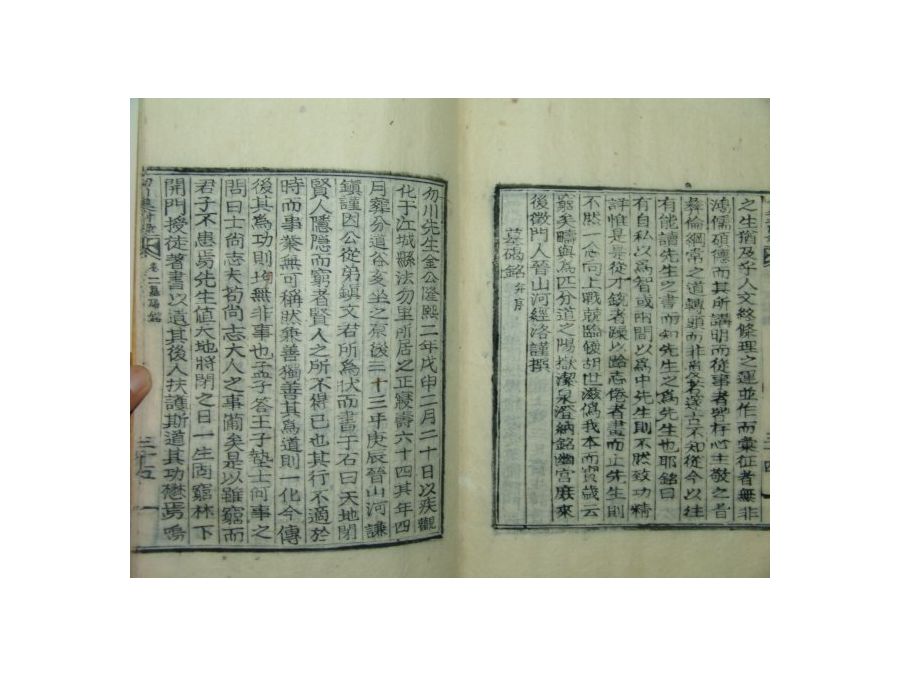 之生猶及
人文終條理之運並作而彙征者無非
鴻儒碩德而其所講明而從事者
存心主敬之旨
彝倫綱常之道轉頭而非
不知從今以往
有能讀先生之書而知先生之爲先生也耶銘曰
有自私以爲智或兩間以爲中先生則不然致功精
詳惟是
從才銳者躁以
志倦者畫而止先生則
不然一念向上戰兢臨
胡世滋僞我本而實歲云
窮矣疇與爲匹分道之陽嶽潔泉澄納銘幽宮庶來
後徵門人晉山河經洛謹撰
墓碣銘 幷序
勿川先生金公隆熙二年戊申二月二十日以疾觀
化于江城縣法勿里所居之正寢壽六十四其年四
月葬分道谷亥坐之原後三十三年庚辰晉山河謙
鎭謹因公從弟鎭文君所爲狀而書于石曰天地閉
賢人隱隱而窮者賢人之所不得已也其行不適於
時而事業無可稱然兼善獨善其爲道則一化今傳
後其爲功則均無非事也孟子答王子墊士何事之
問曰士尚志大苟尚志大人之事備矣是以雖窮而
君子不患焉先生值大地將閉之日一生固窮林下
開門授徒著書以遺其後人扶護斯道其功懋焉嗚
卷二 墓碣銘
三十五